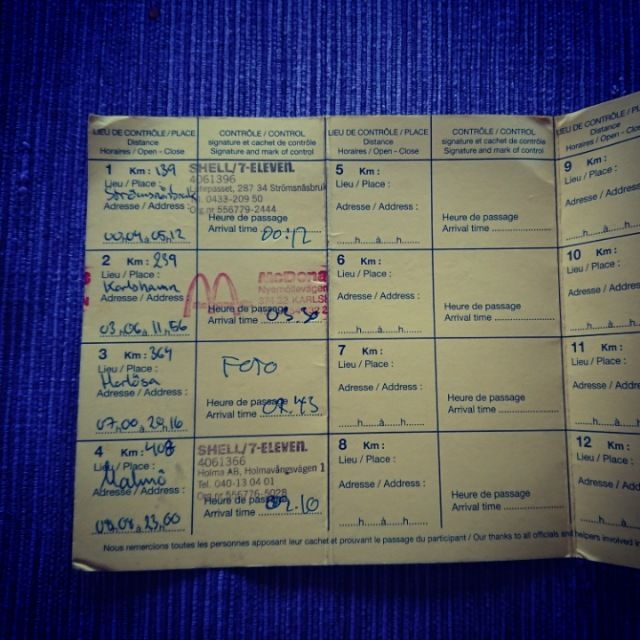 LIEU DE CONTRÔLE / PLACE
Distance
Horaires / Open - Close
CONTRÔLE / CONTROL
signature et cachet de contrôle
Signature and mark of control
LIEU DE CONTRÔLE / PLACE
Distance
Horaires / Open - Close
CONTRÔLE / CONTROL
signature et cachet de contrôle
Signature and mark of control
LIEU DE CONTRÔLE / PLACE
Distance
Horaires / Open - Close
1 Km : 139
Lieu / Place :
Strömsnäsbruk
Adresse / Address :
00h04 à 05h12
SHELL/7-ELEVEN.
4061396
287 34 Strömsnäsbruk
0433-209 50
Org nr 556779-2444
Heure de passage
Arrival time 00:12
2 Km : 239
Lieu / Place :
Karlshamn
Adresse / Address
03h06 à 11h56
McDona
Heure de passage
Arrival time 03.39
3 Km : 364
Lieu / Place :
Adresse / Address :
FOTO
Heure de passage
Arrival time
4 Km : 408
Lieu / Place :
Malmö
Adresse / Address :
SHELL/7-ELEVEN.
4061366
Holma AB, Holmavångsvägen 1
Tel. 040-13 04 01
Org nr 556776-5028
Heure de passage
Arrival time
5 Km :
Lieu / Place :
Adresse / Address :
h à h
Heure de passage
Arrival time
6 Km :
Lieu / Place :
Adresse / Address :
h à h
Heure de passage
Arrival time
7 Km :
Lieu / Place :
Adresse / Address :
h à h
Heure de passage
Arrival time
8 Km :
Lieu / Place :
Adresse / Address :
h à h
Heure de passage
Arrival time
9 Km :
Lieu / Place :
Adresse / Address
h à h
10 Km :
Lieu / Place :
Adresse / Address
h à h
11 Km :
Lieu / Place :
Adresse / Address
h à h
12 Km :
Lieu / Place :
Adresse / Address
h à h
Nous remercions toutes les personnes apposant leur cachet et prouvant le passage du participant / Our thanks to all officials and helpers involved in